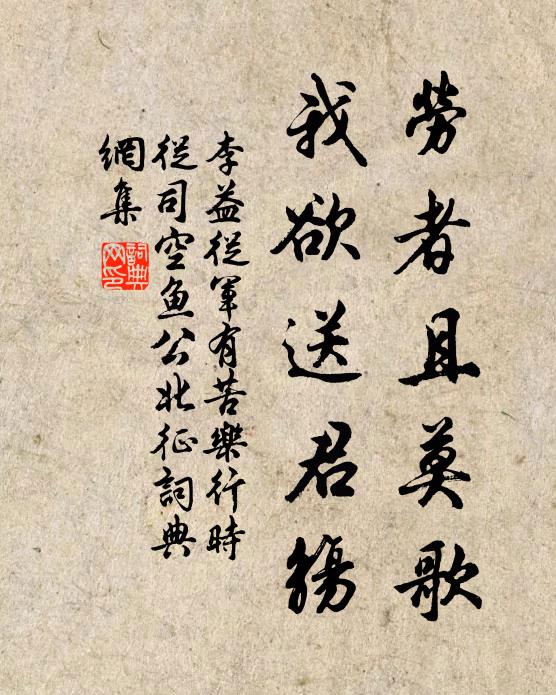 勞者且莫歌
我欲送君觴
李益從軍有苦樂行時
從司空魚公北征詞典
網集
詞典網印